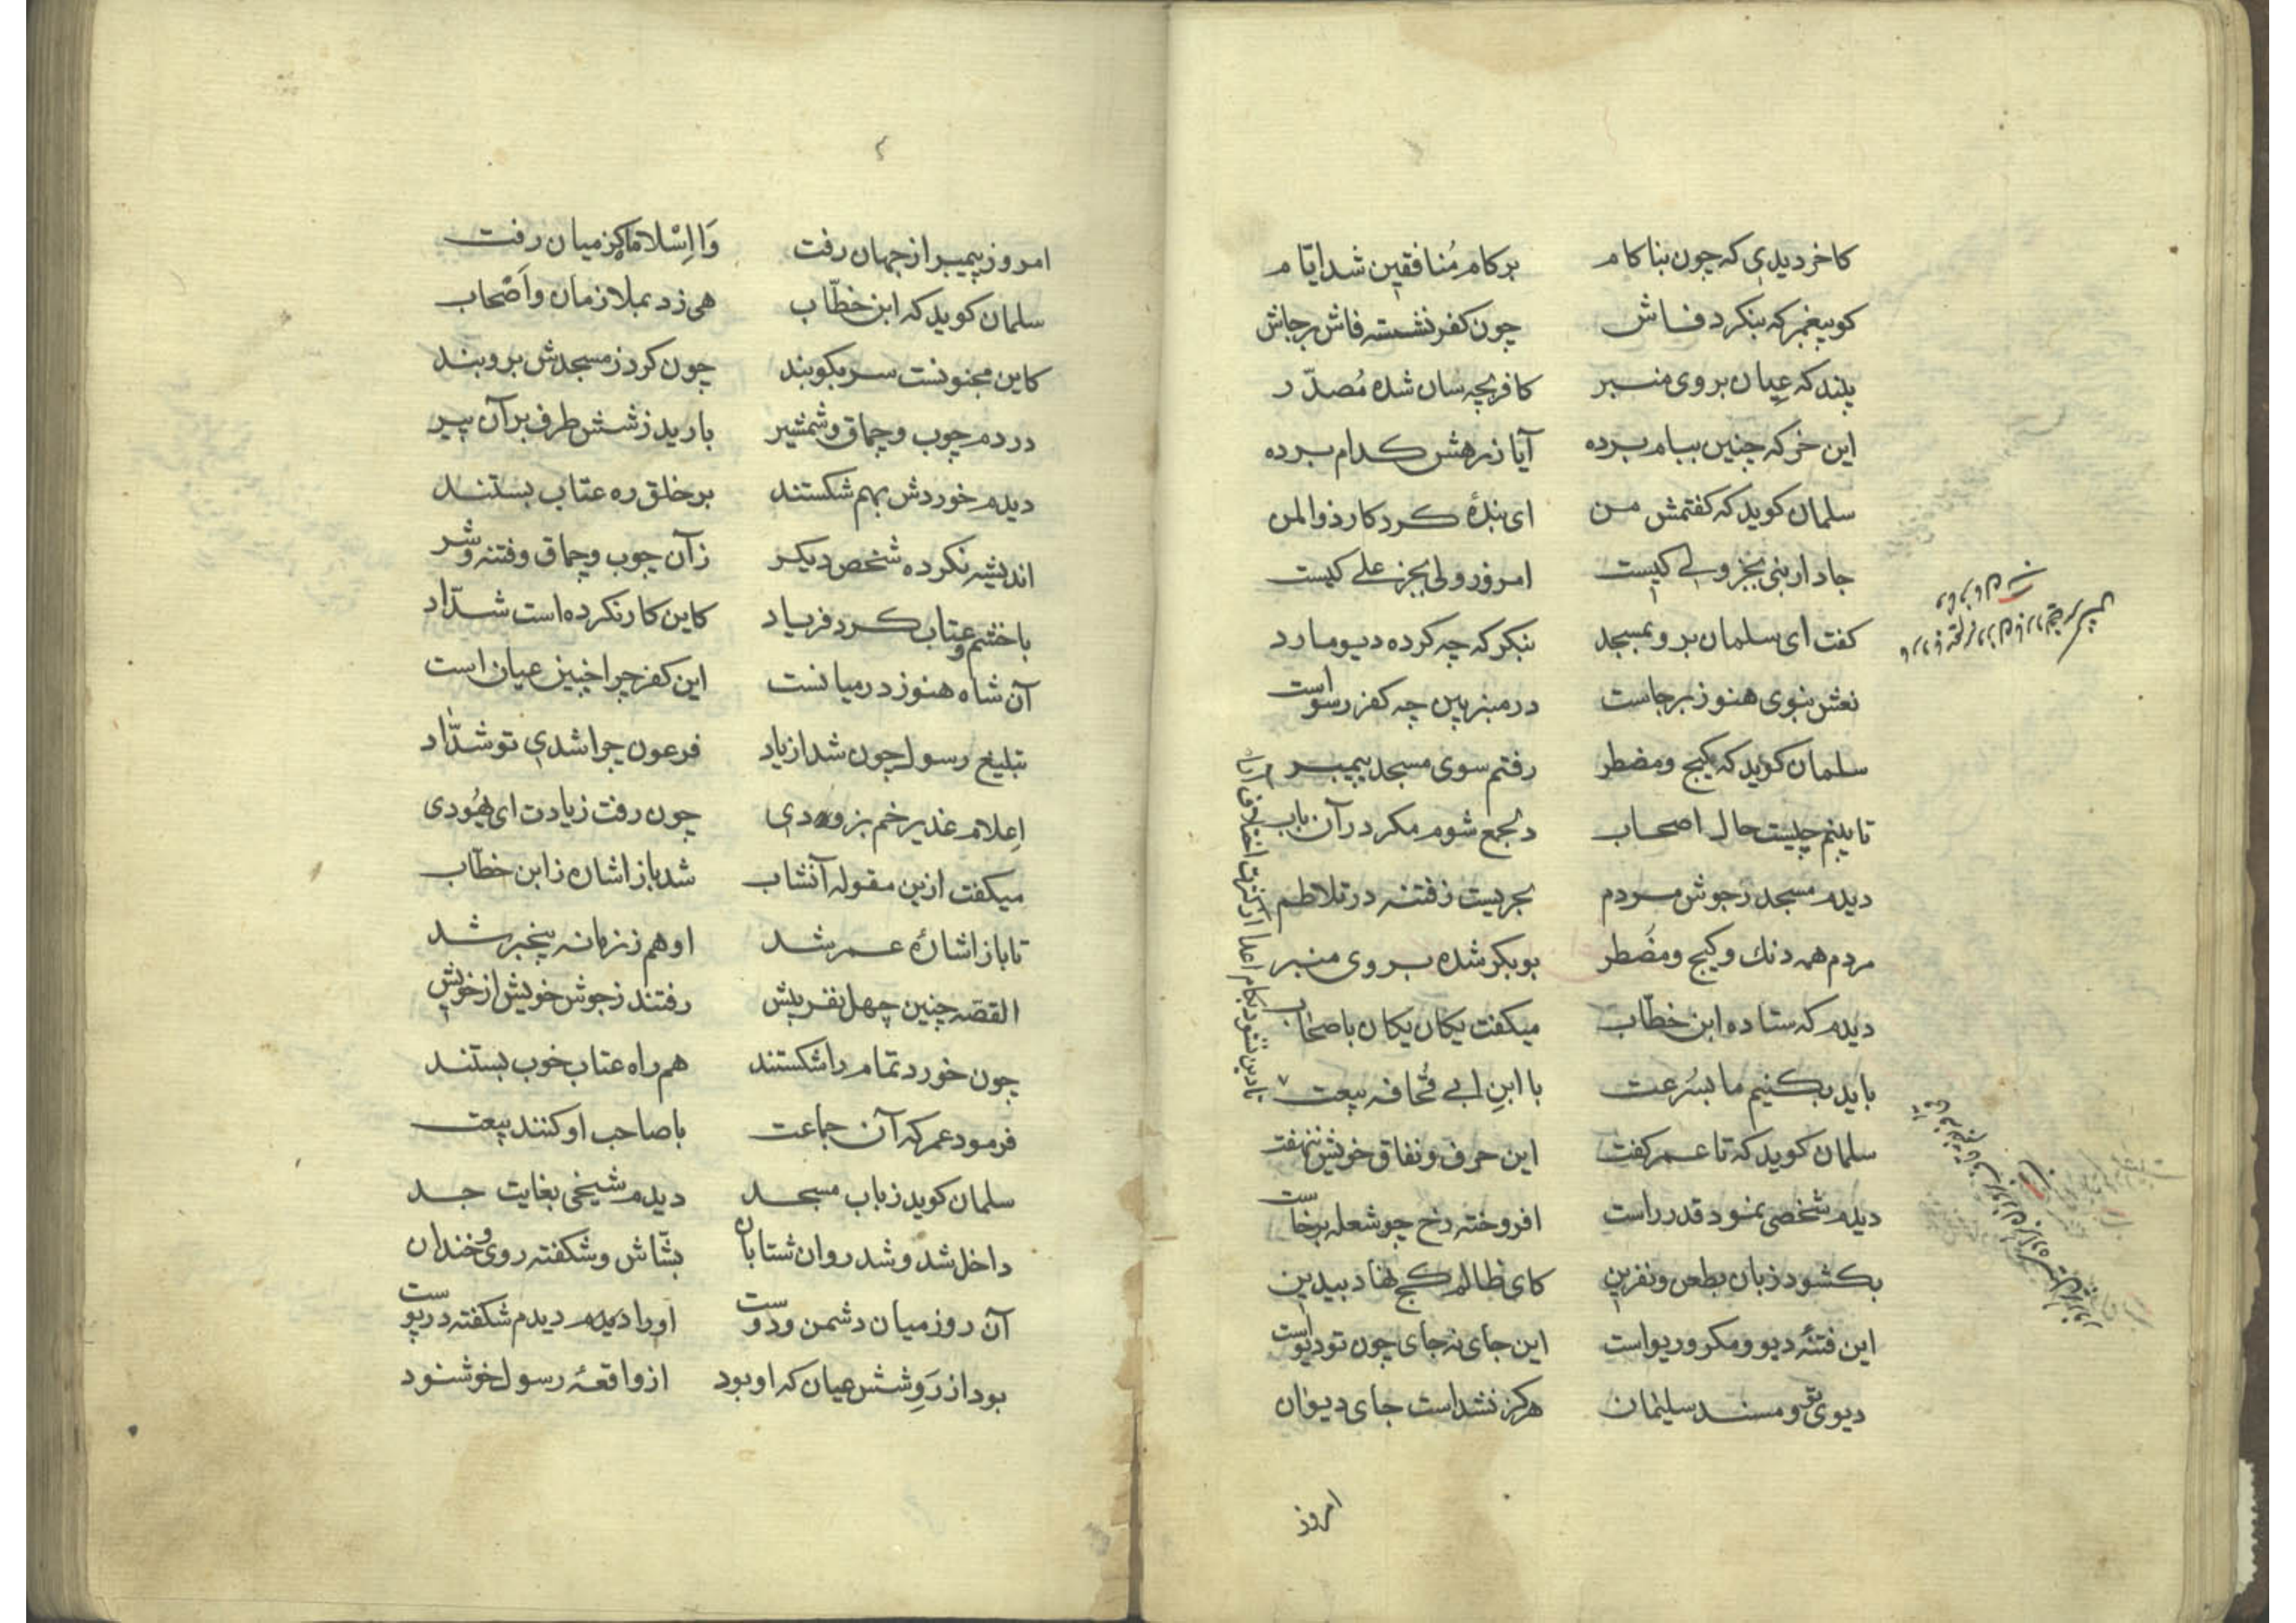 کاخر دیدی که چون بنا کام بر کام مُنافقین شد ایّام
کو پیغمبر که بنکرد فاش چون کفر نشسته فاش برجاش
بیند که عیان بروی منبر کافر بچه سان شده مُصدّر
این خر که چنین ببام برده آیا ز رهش کدام برده
سلمان کوید که کفتمش من ای بندهٔ کردکار ذوالمن
جادار نبی بجز ولی کیست امروز ولی بجز علی کیست
کفت ای سلمان برو بمسجد بنکر که چه کرده دیو مارد
نعش نبوی هنوز برجاست در منبر بین چه کفر رسواست
سلمان کوید که کیج ومضطر رفتم سوی مسجد پیمبر
تا بینم چیست حال اصحاب دلجمع شوم مکر در آن باب
دیدم مسجد زجوش مردم بحریست ز فتنه در تلاطم
مردم همه دنك وکیج ومضُطر بوبکر شده بروی منبر
دیدم که ستاده ابن خطّاب میکفت یکان یکان باصحاب
باید بکنیم ما بسُرعت با ابنِ ابی قُحافه بیعت
سلمان کوید که تا عمر کفت این حرف ونفاق خویش ننهفت
دیدم شخصی نمود قدر راست افروخته رخ چو شعله برخاست
بکشود زبان بطعن ونفرین کای ظالم کج نهاد بیدین
این فتنهٔ دیو ومکر وریواست این جای نه جای چون تو دیواست
دیوی تو ومسند سلیمان هرکز نشداست جای دیوان
امروز
امروز پیمبر از جهان رفت وَا اِسْلاما کز میان رفت
سلمان کوید که ابن خطّاب هی زد بملازمان واَصْحاب
کاین مجنونست سر بکوبند چون کرد ز مسجدش برو بند
در دم چوب وچماق وشمشیر بارید ز شش طرف بر آن پیر
دیدم خوردش بهم شکستند بر خلق ره عتاب بستند
اندیشه نکرده شخص دیکر زآن چوب وچماق وفتنه وشر
با خشم وعتاب کرد فریاد کاین کار نکرده است شدّاد
آن شاه هنوز در میانست این کفر چرا چنین عیان است
تبلیغ رسول چون شد از یاد فرعون چرا شدی تو شدّاد
اِعلام غدیر خم بزودی چون رفت زیادت ای یهُودی
میکفت ازین مقوله آنشاب شد باز اشاره ز ابن خطّاب
تا باز اشارهٔ عمر شد او هم ز زمانه بیخبر شد
القصّه چنین چهل نفر بیش رفتند ز جوش خویش از خویش
چون خورد تمام را شکستند هم راه عتاب خوب بستند
فرمود عمر که آن جماعت با صاحب او کنند بیعت
سلمان کوید ز باب مسجد دیدم شیخی بغایت جد
داخل شد وشد روان شتابان بشّاش وشکفته روی وخندان
آن روز میان دشمن ودوست او را دیدم شکفته در پوست
بود از رَوِشش عیان که او بود از واقعهٔ رسول خوشنود